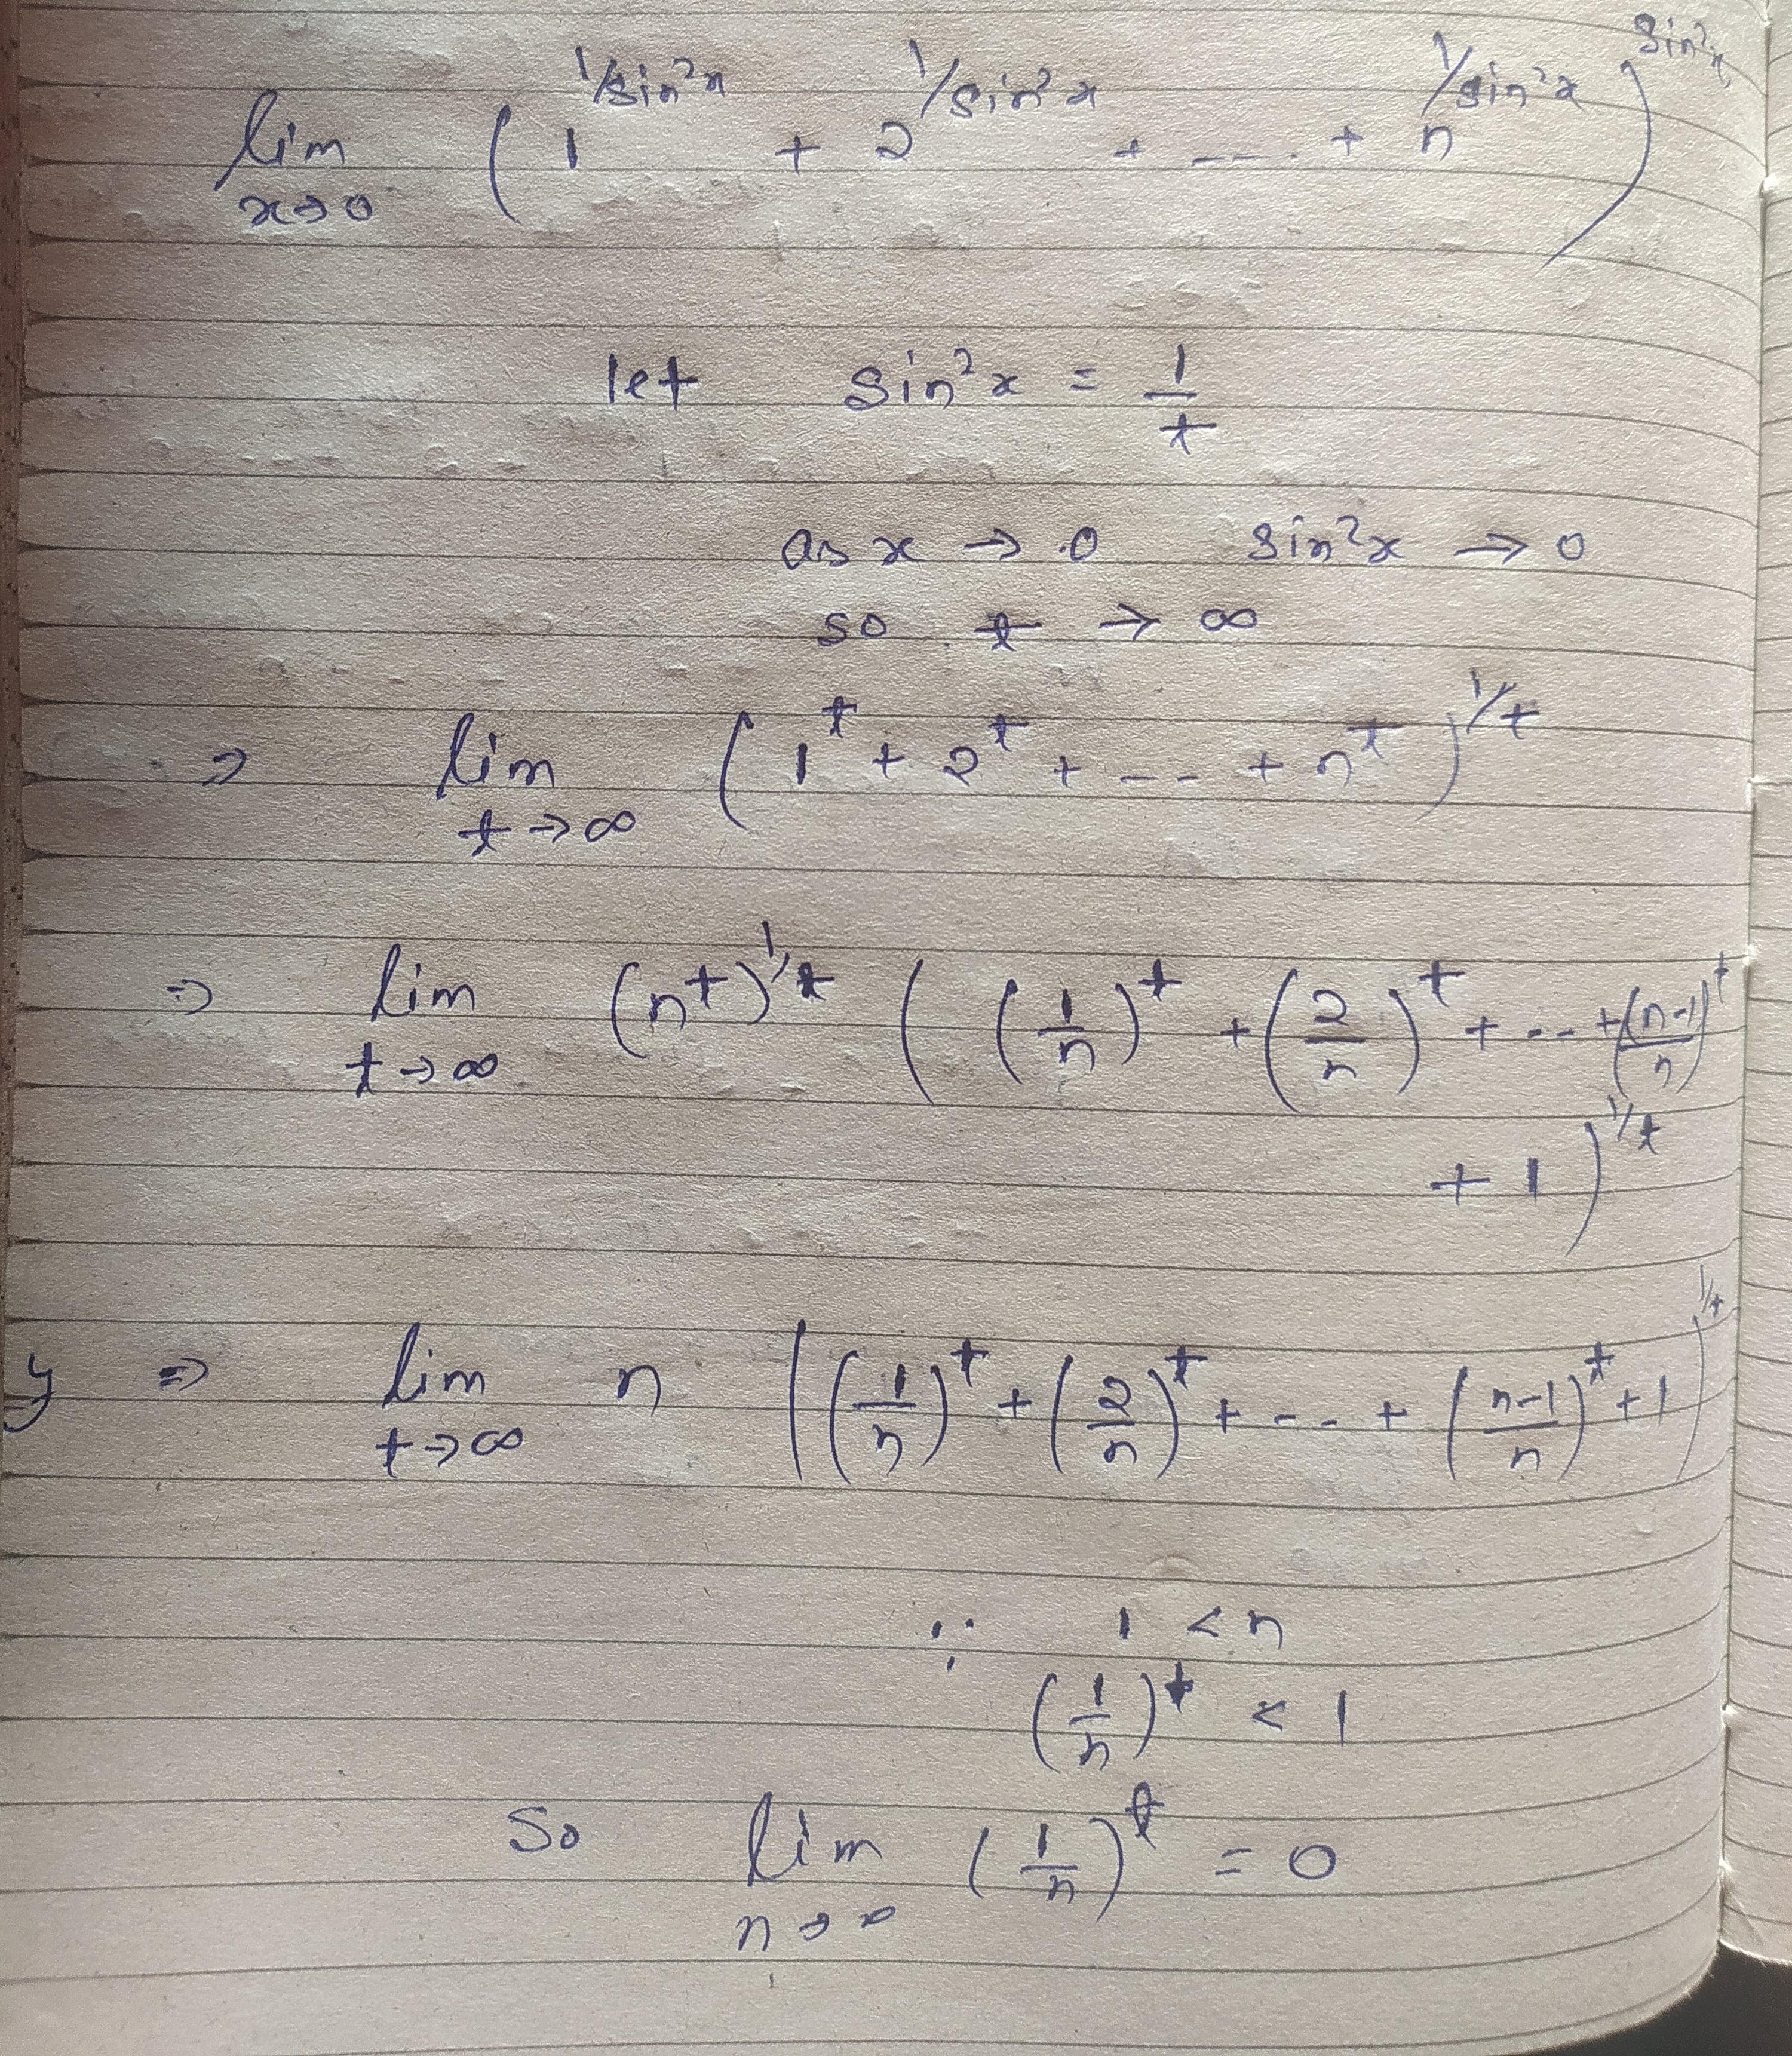 lim x→0 ( 1^{1/sin²x} + 2^{1/sin²x} + --- . + n^{1/sin²x} )^{sin²x}
let sin²x = 1/t
as x → 0 sin²x → 0
so t → ∞
⇒ lim t→∞ ( 1^t + 2^t + -- + n^t )^{1/t}
⇒ lim t→∞ (n^t)^{1/t} ( (1/n)^t + (2/n)^t + -- + ((n-1)/n)^t
+ 1 )^{1/t}
y ⇒ lim t→∞ n ( (1/n)^t + (2/n)^t + -- + ((n-1)/n)^t + 1 )^{1/t}
∵ 1 < n
(1/n)^t < 1
So lim n→∞ (1/n)^t = 0